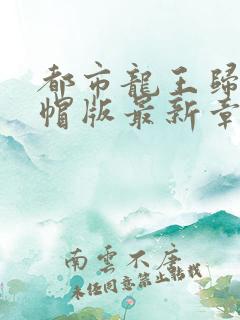 都市龍王歸
帽版最新章
南雲不唐
未经同意禁止转载